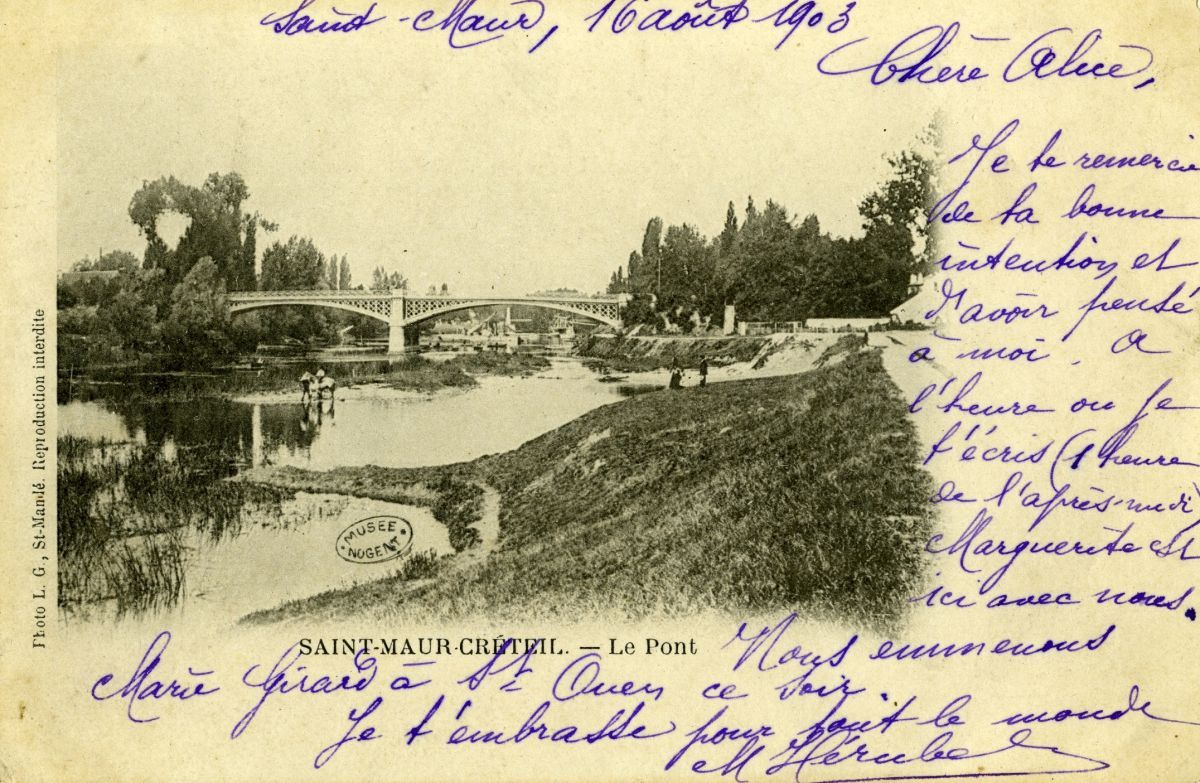 Saint-Maur, 16 août 1903
Chère Alice,
Je te remercie
de ta bonne
intention et
d'avoir pensé
à moi. A
l'heure ou je
t'écris (1 heure
de l'après-midi
Marguerite est
ici avec nous.
Nous emmenons
Marie Girard à St Ouen ce soir.
Je t'embrasse pour tout le monde
M Hérubel
SAINT-MAUR-CRÉTEIL. — Le Pont
Photo L. G., St-Mandé. Reproduction interdite
MUSEE
NOGENT